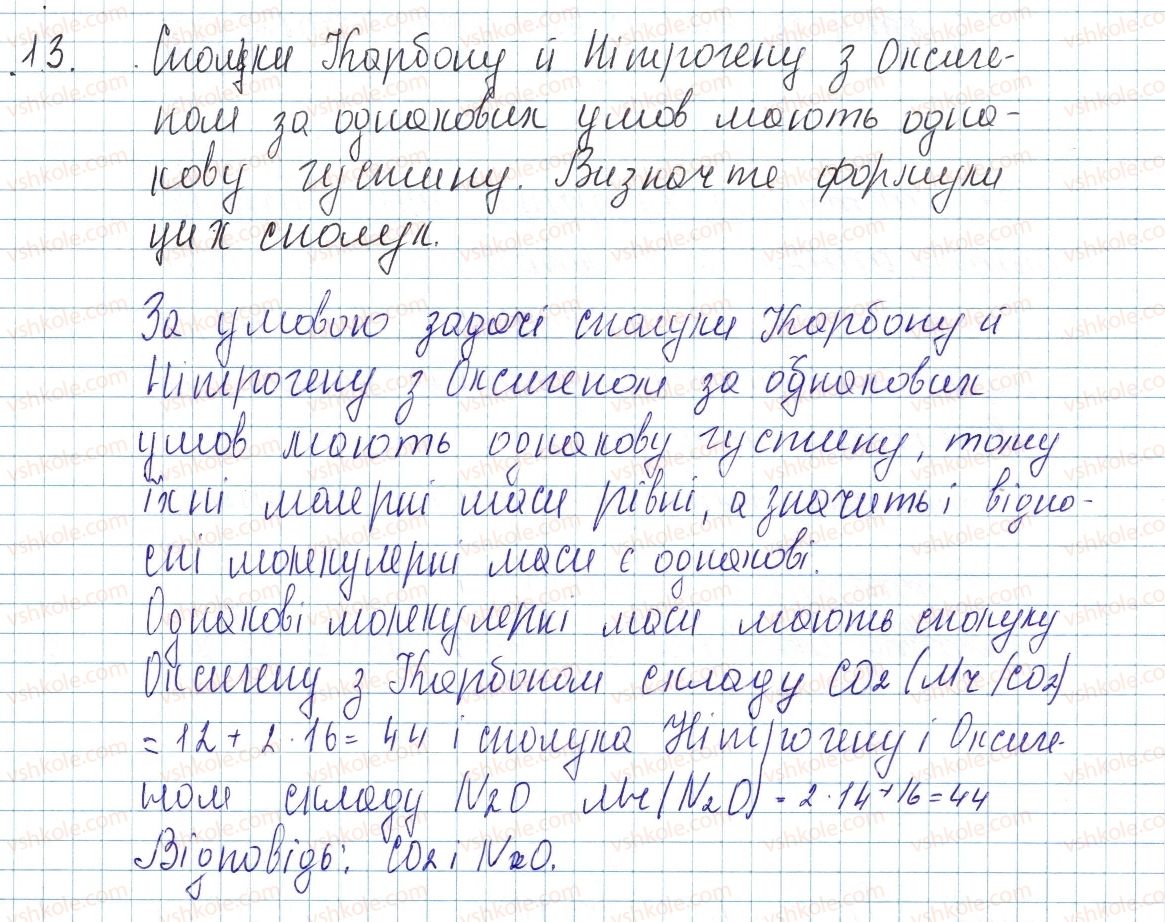 13. Сполуки Карбону й Нітрогену з Оксиге-
ном за однакових умов мають одна-
кову густину. Визначте формули
цих сполук.
За умовою задачі сполуки Карбону й
Нітрогену з Оксигеном за однакових
умов мають однакову густину, тому
їхні молярні маси рівні, а значить і відно-
сні молекулярні маси є однакові.
Однакові молекулярні маси мають сполуку
Оксигену з Карбоном складу CO2 (Mr(CO2)
= 12 + 2·16 = 44 і сполука Нітрогену і Оксиге-
ном складу N2O Mr(N2O) = 2·14+16=44
Відповідь: CO2 і N2O.